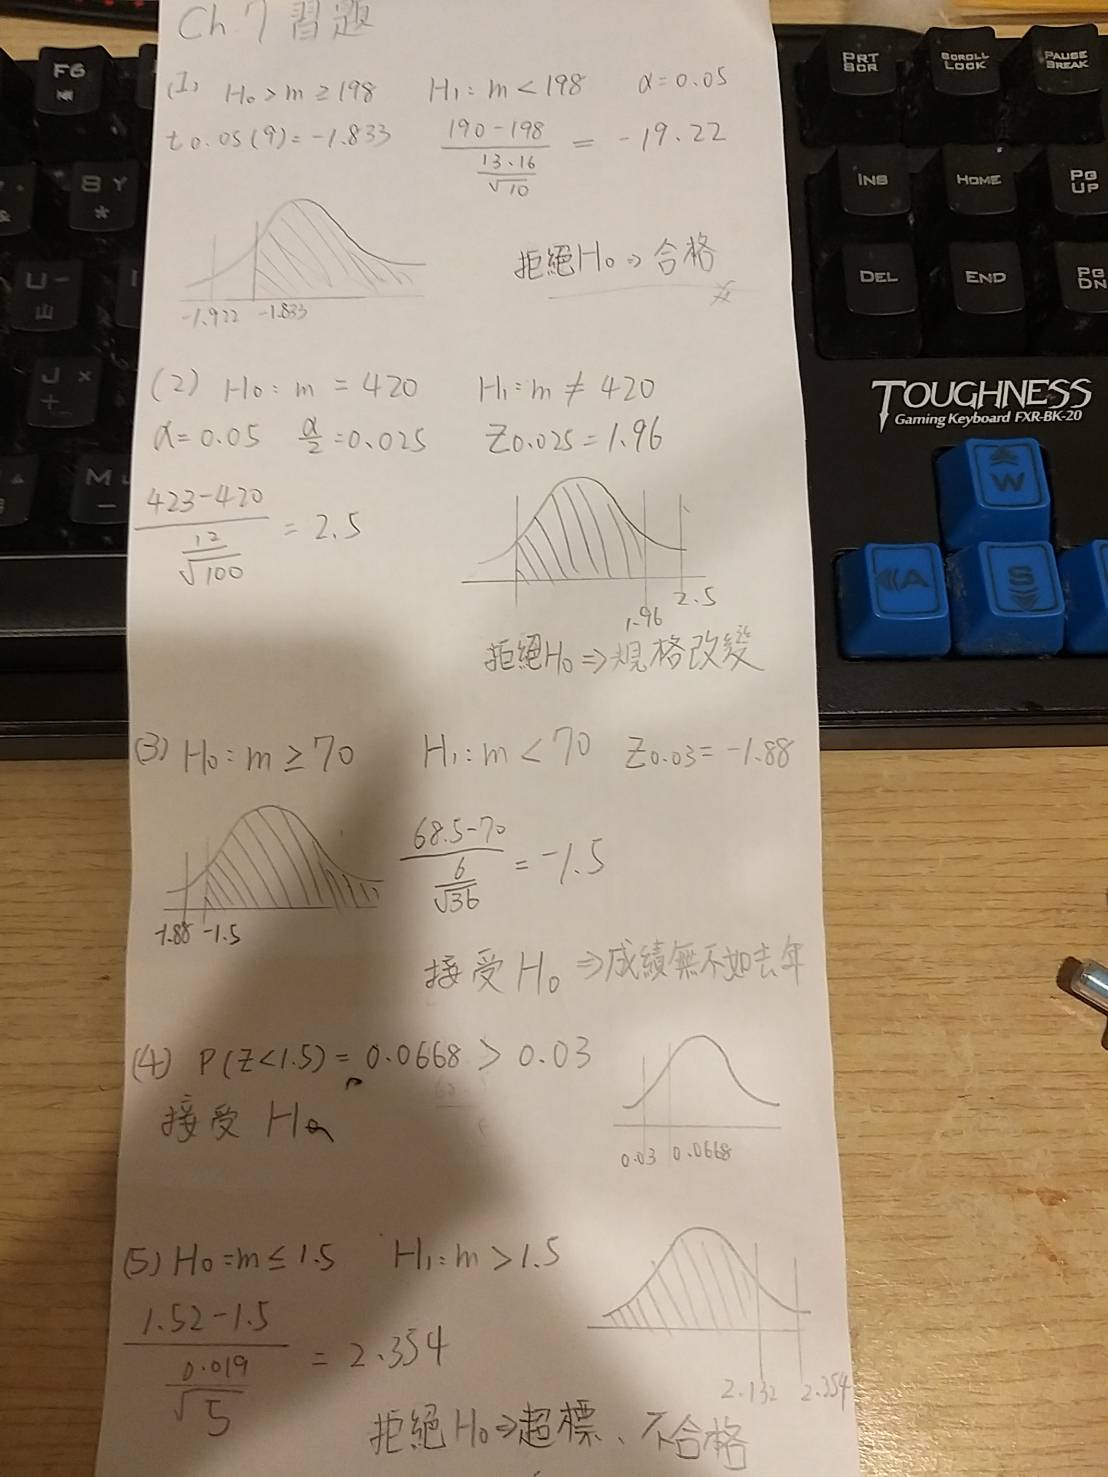 Ch.7 習題
(1) H₀ > m ≥ 198 H₁: m < 198 α = 0.05
t0.05(9) = -1.833 (190-198)/(13.16/√10) = -19.22
-1.922 -1.833
拒絕H₀ ⇒ 合格
(2) H₀: m = 420 H₁: m ≠ 420
α = 0.05 α/2 = 0.025 Z0.025 = 1.96
(423-420)/(12/√100) = 2.5
1.96 2.5
拒絕H₀ ⇒ 規格改變
(3) H₀: m ≥ 70 H₁: m < 70 Z0.03 = -1.88
(68.5-70)/(6/√36) = -1.5
-1.88 -1.5
接受 H₀ ⇒ 成績無不如去年
(4) P(Z<1.5) = 0.0668 > 0.03
接受 H₀
0.03 0.0668
(5) H₀ = m ≤ 1.5 H₁: m > 1.5
(1.52-1.5)/(0.019/√5) = 2.354
2.132 2.354
拒絕H₀ ⇒ 超標、不合格
F6
8
*
U
山
J
M
PRT SCR
SCROLL LOCK
PAUSE BREAK
INS
HOME
PG UP
DEL
END
PG DN
TOUGHNESS
Gaming Keyboard FXR-BK-20
W
A
S